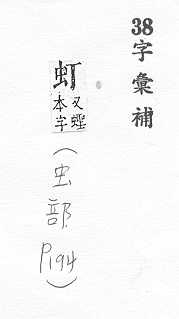 38
字彙補
虰
又蟶
本字
(虫部 P194)